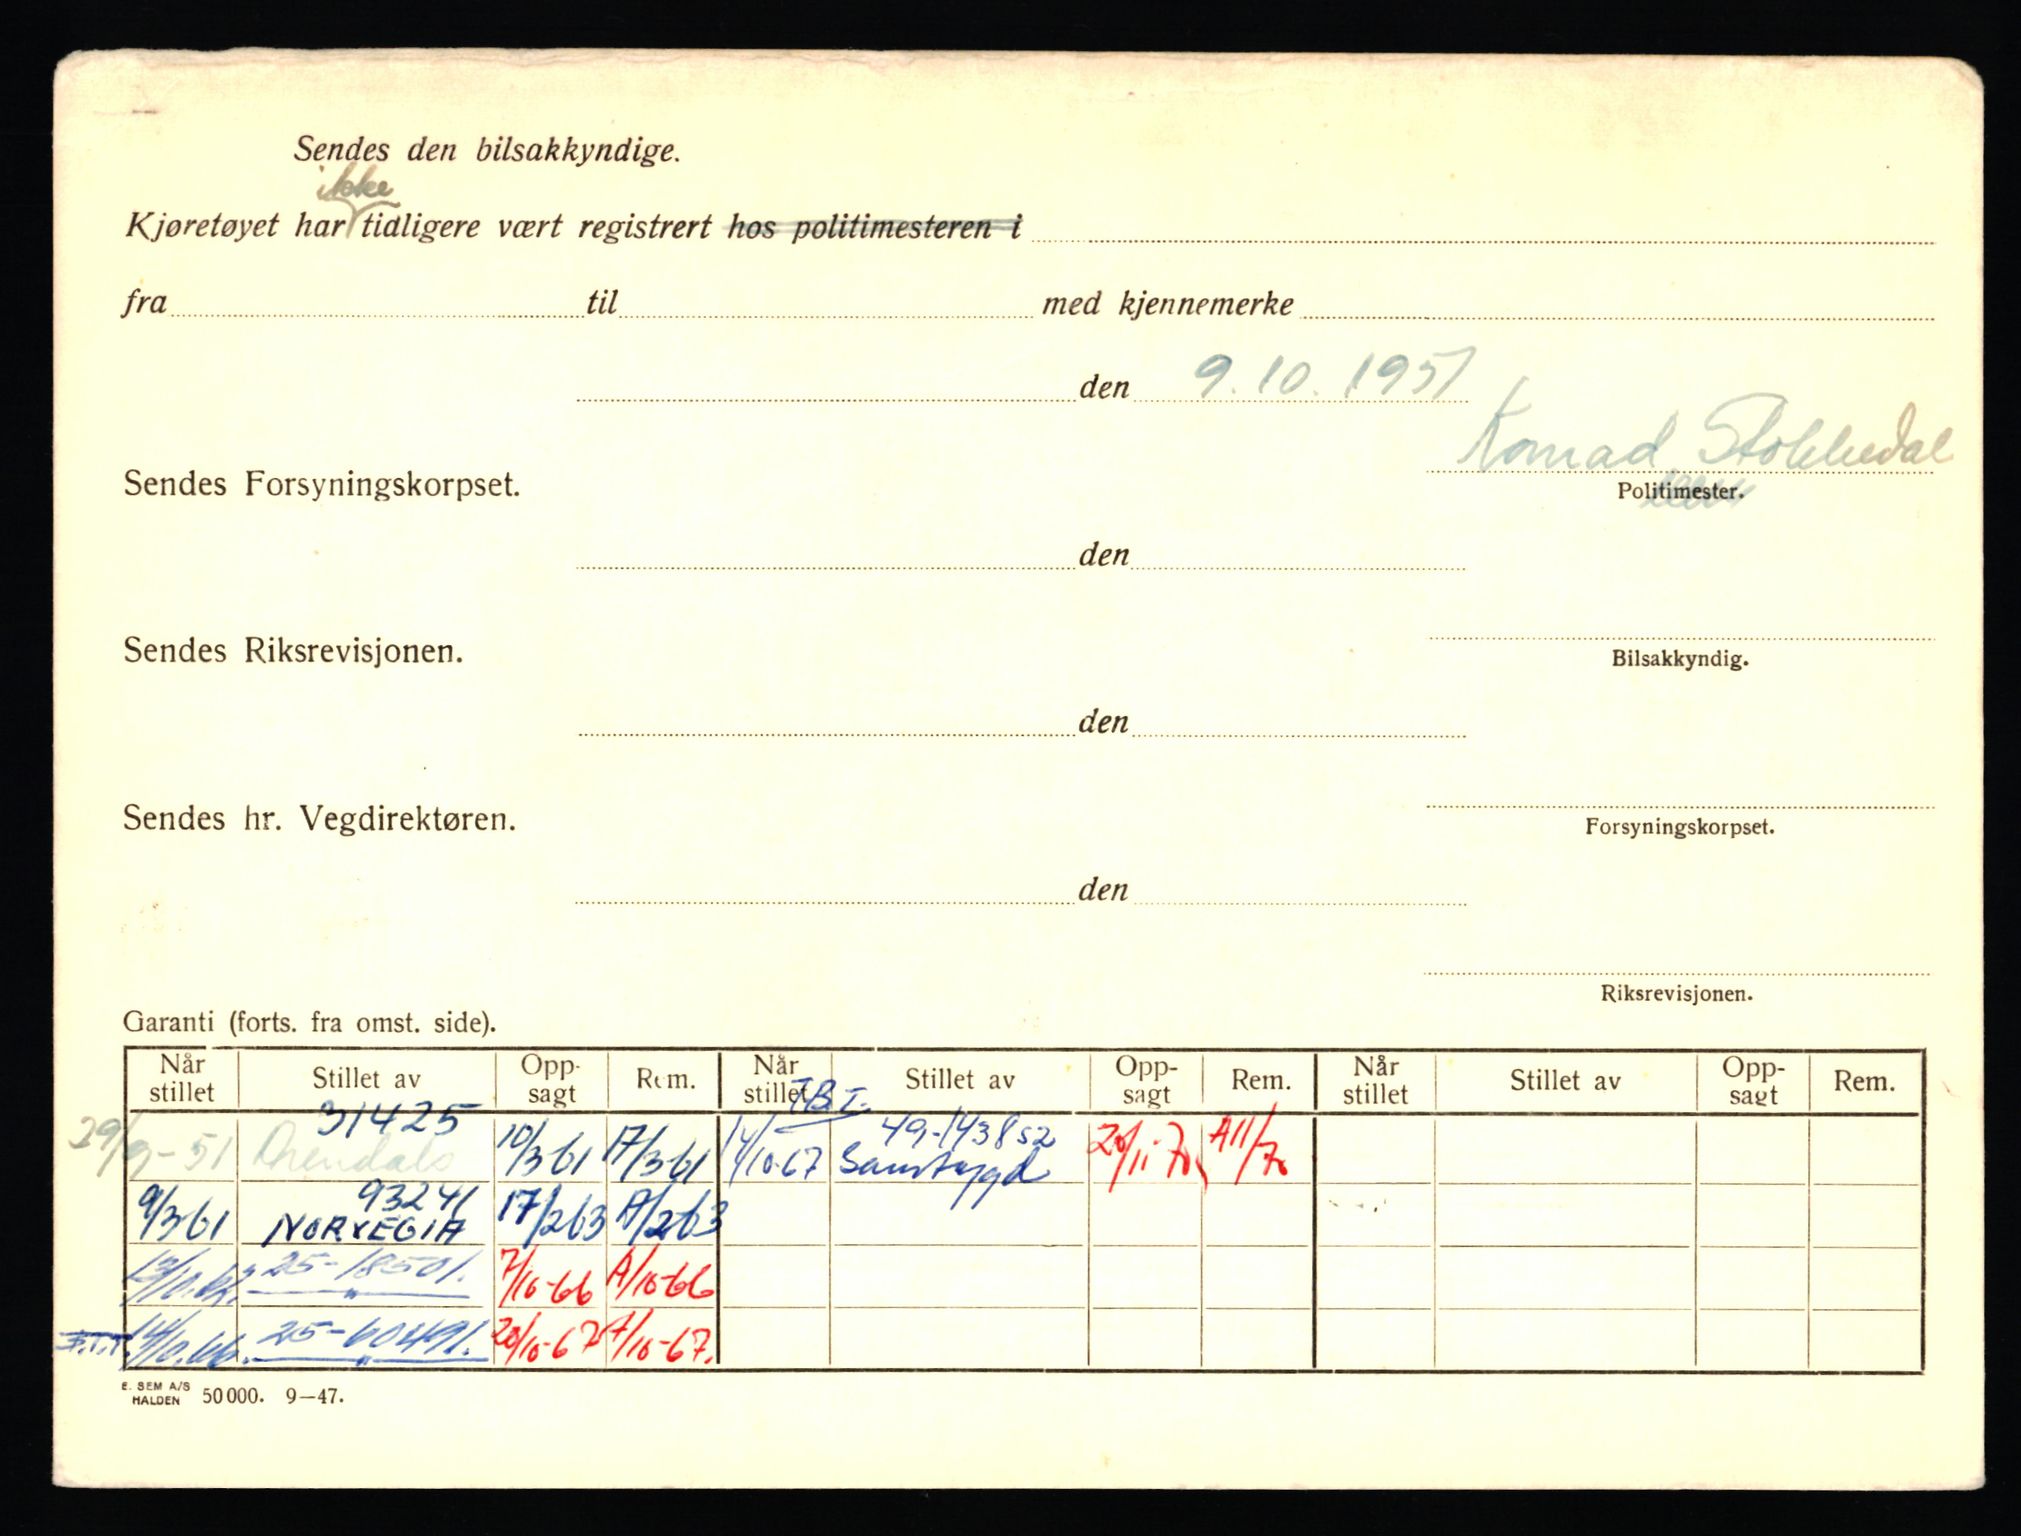 Sendes den bilsakkyndige.
ikke
Kjøretøyet har tidligere vært registrert hos politimesteren i
fra til med kjennemerke
den 9.10.1951
Konrad Stokkedal
Sendes Forsyningskorpset.
Politimester.
den
Sendes Riksrevisjonen.
Bilsakkyndig.
den
Sendes hr. Vegdirektøren.
Forsyningskorpset.
den
Riksrevisjonen.
Garanti (forts. fra omst. side).
Når stillet Stillet av Opp-sagt Rem. Når stillet Stillet av Opp-sagt Rem. Når stillet Stillet av Opp-sagt Rem.
31425 49-143852
29/9-51 Arendals 10/3 61 A/3-61 14/10-67 Samtrygd 20/11-70 A11/70
93241
9/3 61 NORVEGIA 17/2 63 A/2 63
25-18501. 7/10-66 A/10-66
14/10.66. 25-60491. 20/10-67 A/10-67.
E. SEM A/S
HALDEN 50 000. 9—47.